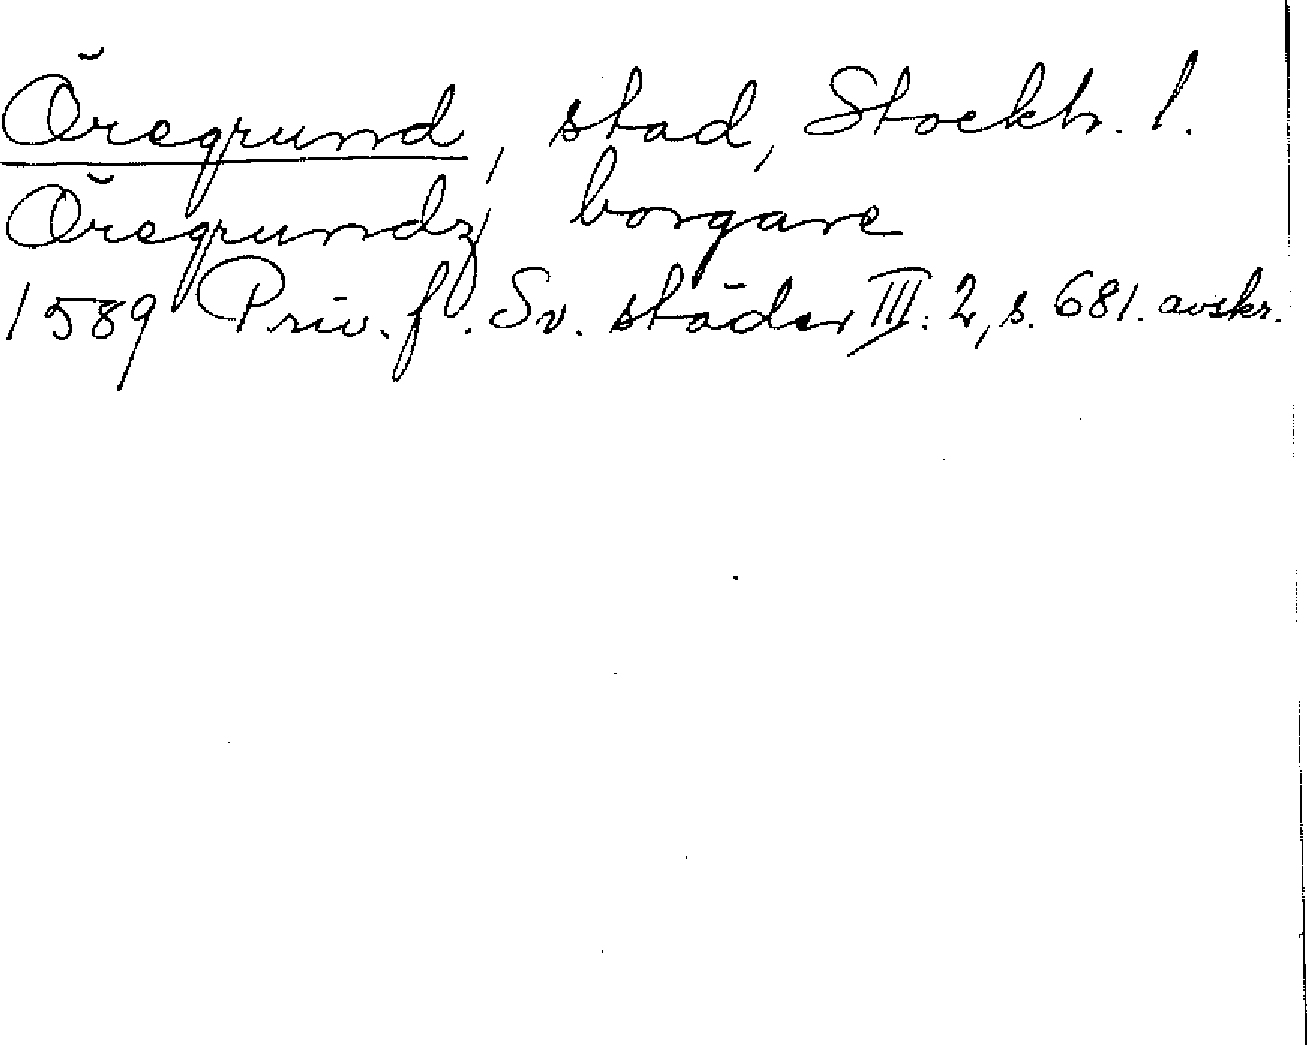 Öregrund, stad, Stockh. l.
Öregrundz borgare
1589 Priv. f. Sv. städer III: 2, s. 681. avskr.